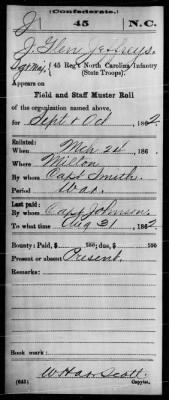 (Confederate.)
J 45 N.C.
J. Glen Jeffreys
Sgt Maj., 45 Reg't North Carolina Infantry
(State Troops).
Appears on
Field and Staff Muster Roll
of the organization named above,
for Sept & Oct, 1862
Enlisted:
When Mch 24, 186
Where Milton
By whom Capt Smith
Period War
Last paid:
By whom Capt Johnson
To what time Aug 31, 1862
Bounty: Paid, $ 100; due, $ 100
Present or absent Present
Remarks:
Book mark:
W Har. Scott
(645) Copyist.